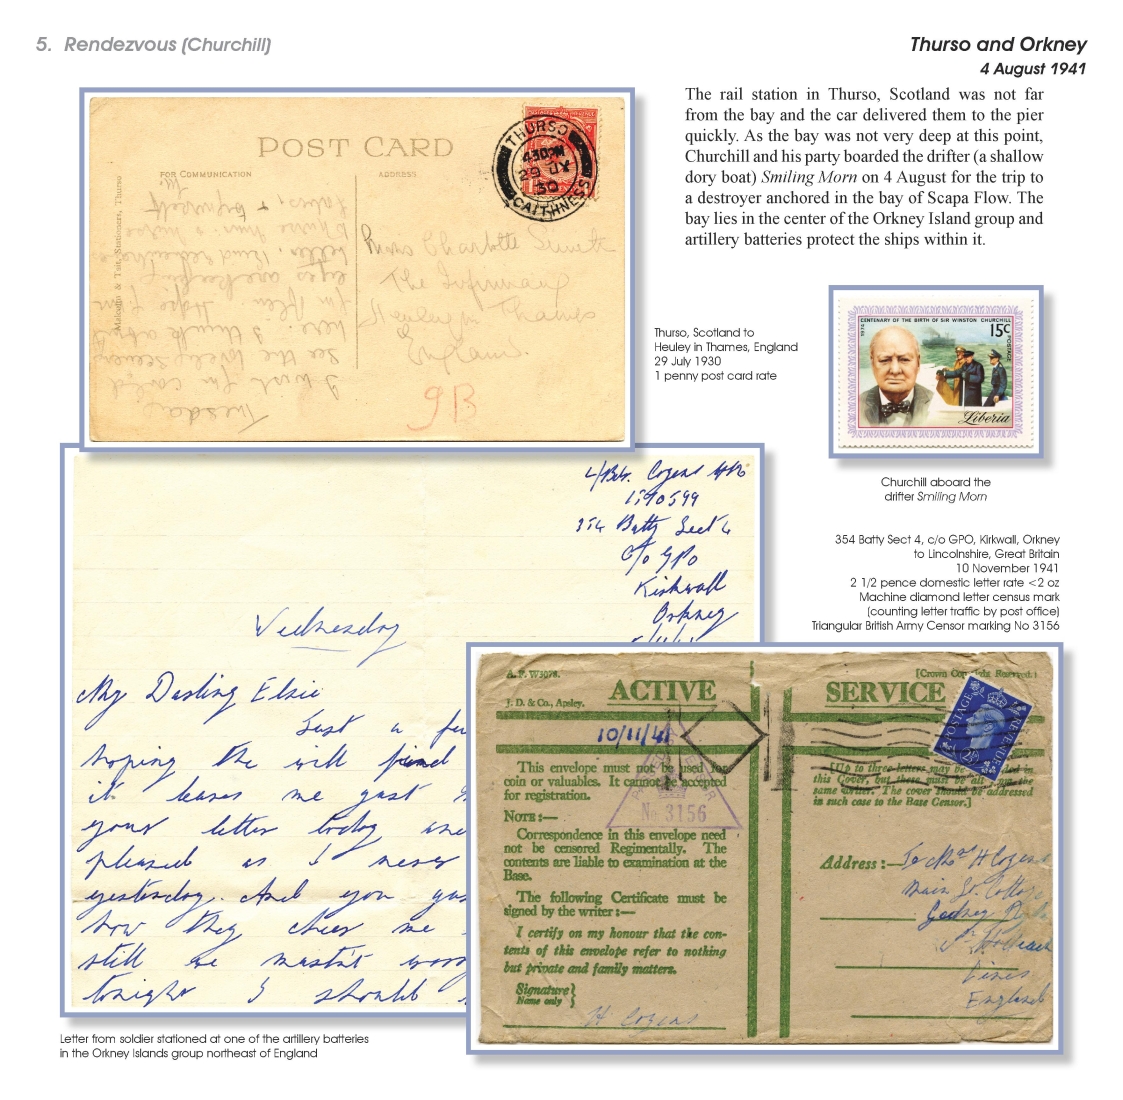 5. Rendezvous (Churchill)
Thurso and Orkney
4 August 1941
The rail station in Thurso, Scotland was not far
from the bay and the car delivered them to the pier
quickly. As the bay was not very deep at this point,
Churchill and his party boarded the drifter (a shallow
dory boat) Smiling Morn on 4 August for the trip to
a destroyer anchored in the bay of Scapa Flow. The
bay lies in the center of the Orkney Island group and
artillery batteries protect the ships within it.
POST CARD
FOR COMMUNICATION
ADDRESS
THURSO
4 30PM
29 JY
30
CAITHNESS
Stationers, Thurso
Miss Charlotte
The Infirmary
Thames
England
9B
Tuesday
Thurso, Scotland to
Heuley in Thames, England
29 July 1930
1 penny post card rate
CENTENARY OF THE BIRTH OF SIR WINSTON CHURCHILL
1974
15c
POSTAGE
Liberia
Churchill aboard the
drifter Smiling Morn
354 Batty Sect 4, c/o GPO, Kirkwall, Orkney
to Lincolnshire, Great Britain
10 November 1941
2 1/2 pence domestic letter rate <2 oz
Machine diamond letter census mark
(counting letter traffic by post office)
Triangular British Army Censor marking No 3156
Cozens
1590599
354 Batty Sect 4
c/o GPO
Kirkwall
Orkney
Wednesday
My Darling Elsie
Just a
hoping the will find
it leaves me just
your letter today
pleased as I never
yesterday. And you
how they cheer me
still we mustn't
tonight I should
A. F. W3078.
[Crown Reserved.]
ACTIVE SERVICE
J. D. & Co., Apsley.
10/11/41
This envelope must not be used for
coin or valuables. It cannot be accepted
for registration.
NOTE:—
Correspondence in this envelope need
not be censored Regimentally. The
contents are liable to examination at the
Base.
The following Certificate must be
signed by the writer:—
I certify on my honour that the con-
tents of this envelope refer to nothing
but private and family matters.
Signature }
Name only
H Cozens
No 3156
POSTAGE
REVENUE
[Up to three letters may be
this Cover, but these must be all
same writer. The cover should be addressed
in such case to the Base Censor.]
Address:— To Mrs H Cozens
Main St.
Gedney
Lincs
England
Letter from soldier stationed at one of the artillery batteries
in the Orkney Islands group northeast of England